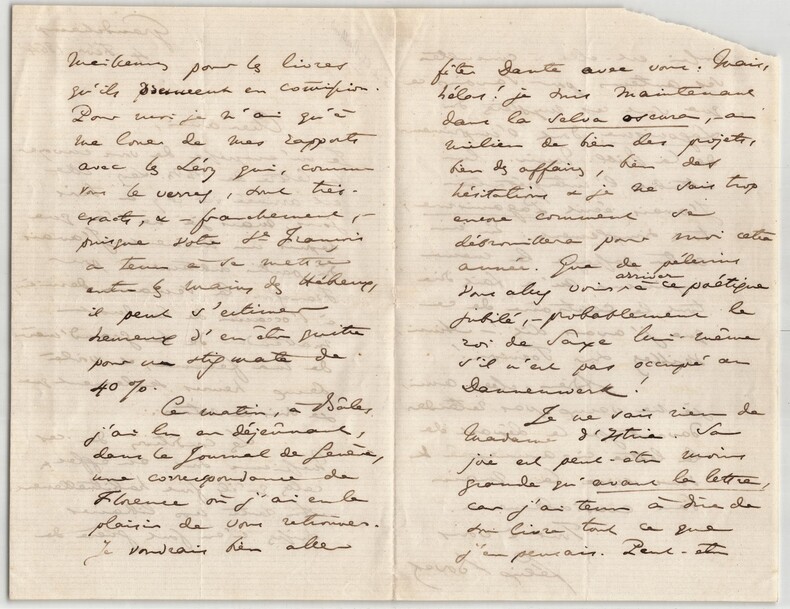 pour les livres
qu'ils prennent en commission.
Pour moi je n'ai qu'à
me louer de mes rapports
avec les Lévy qui, comme
vous le verrez, sont très-
exacts, & – franchement, –
puisque votre St François
a tenu à se mettre
entre les mains des Hébreux,
il peut s'estimer
heureux d'en être quitte
pour un stigmate de
40 %.
Ce matin, à Bâle,
j'ai lu en déjeûnant,
dans le Journal de Genève,
une correspondance de
Florence où j'ai eu le
plaisir de vous retrouver.
Je voudrais bien aller
fêter Dante avec vous. Mais,
hélas! je suis maintenant
dans la selva oscura, – au
milieu de bien des projets,
bien des affaires, bien des
hésitations & je ne sais trop
encore comment se
débrouillera pour moi cette
année. Que de pèlerins
vous allez voir arriver à ce poétique
jubilé, – probablement le
roi de Saxe lui-même
s'il n'est pas occupé au
Dannewerk!
Je ne sais rien de
Madame d'Istria. Sa
joie est peut-être moins
grande qu'avant la lettre,
car j'ai tenu à dire de
son livre tout ce que
j'en pensais. Peut-être